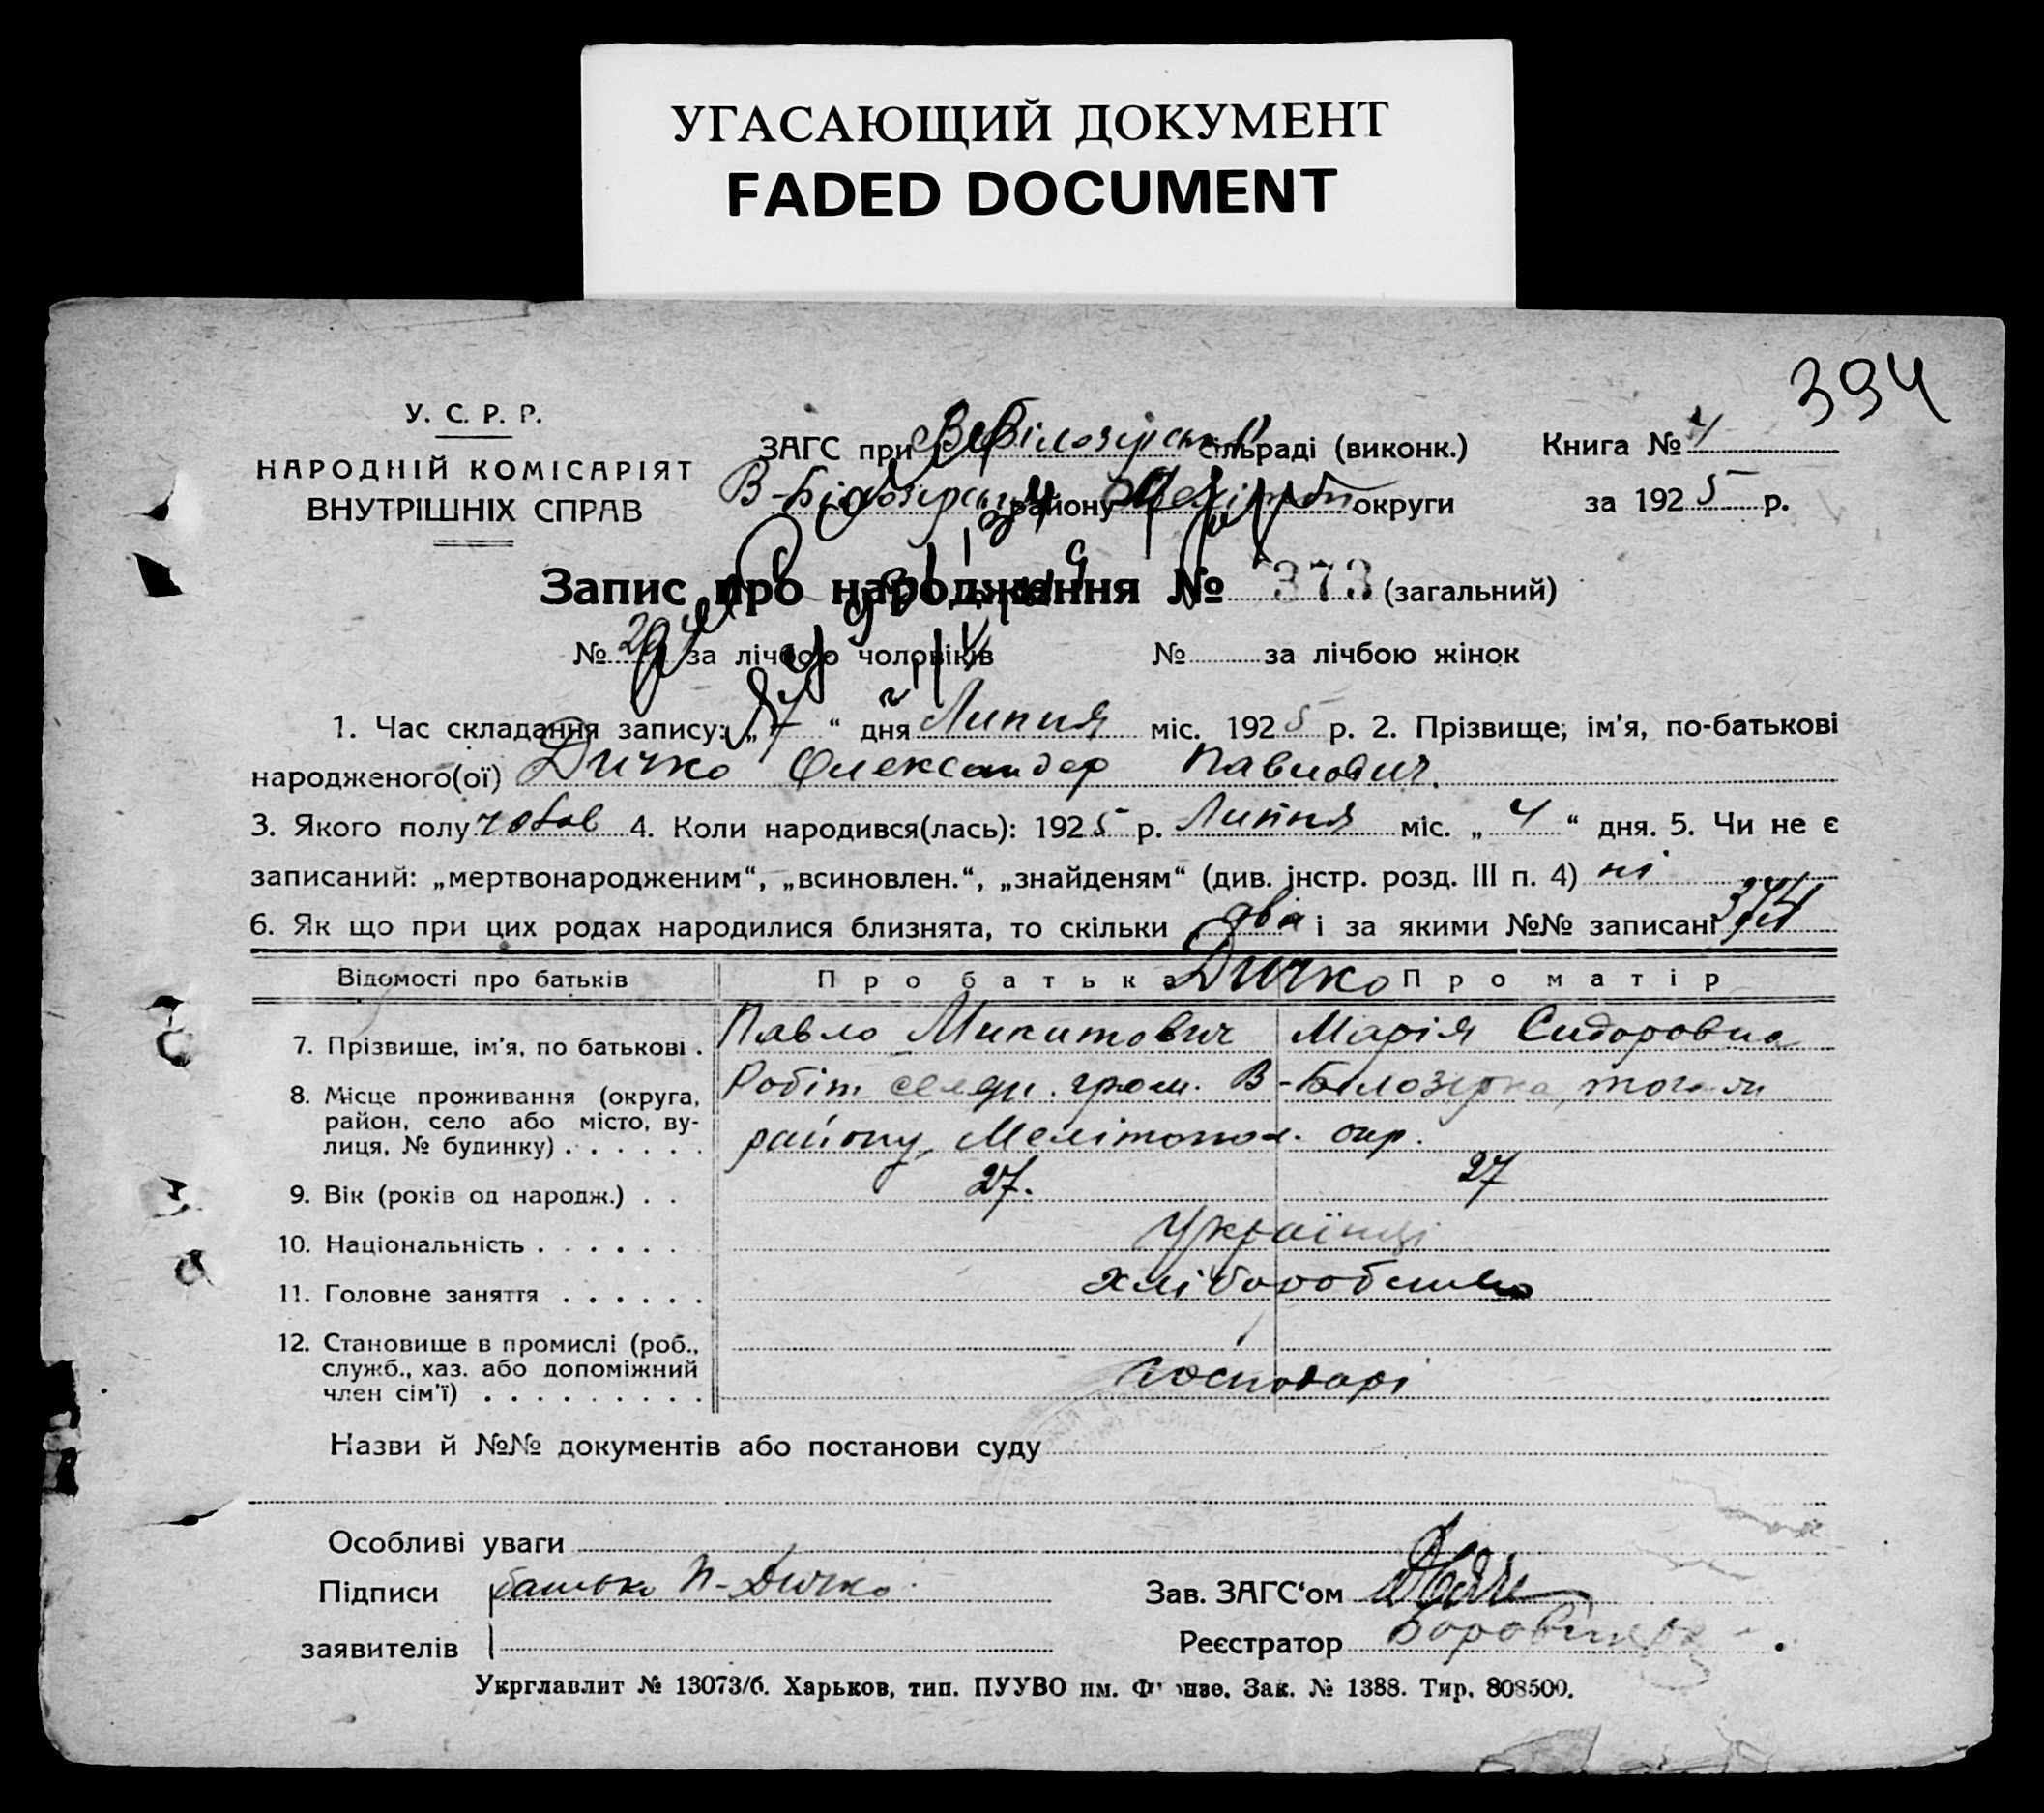 УГАСАЮЩИЙ ДОКУМЕНТ
FADED DOCUMENT
394
У. С. Р. Р.
НАРОДНІЙ КОМІСАРІЯТ
ВНУТРІШНІХ СПРАВ
ЗАГС при В-Білозірськ сільраді (виконк.)
В-Білозірськ району Меліт округи
Книга № 4
за 1925 р.
Запис про народження № 373 (загальний)
№ за лічбою чоловіків № за лічбою жінок
1. Час складання запису: „ 17 “ дня Липня міс. 1925 р. 2. Прізвище, ім’я, по-батькові
народженого(ої) Дичко Олександер Павлович.
3. Якого полу чолов 4. Коли народився(лась): 1925 р. Липня міс. „ 4 “ дня. 5. Чи не є
записаний: „мертвонародженим“, „всиновлен.“, „знайденям“ (див. інстр. розд. III п. 4) ні
6. Як що при цих родах народилися близнята, то скільки два і за якими №№ записані 374
Відомості про батьків Про батька Дичко Про матір
7. Прізвище, ім’я, по батькові . Павло Микитович Марія Сидоровна
8. Місце проживання (округа, район, село або місто, вулиця, № будинку) . . . . . . Робіт гром. В-Білозірка,
району, Мелітопол. окр.
9. Вік (років од народж.) . . 27. 27
10. Національність . . . . . . Українці
11. Головне заняття . . . . . . хліборобство
12. Становище в промислі (роб., служб., хаз. або допоміжний член сім’ї) . . . . . . . . . господарі
Назви й №№ документів або постанови суду
Особливі уваги
Підписи батько П-Дичко
заявителів
Зав. ЗАГС‘ом
Реєстратор
Укрглавлит № 13073/б. Харьков, тип. ПУУВО им. Фрунзе. Зак. № 1388. Тир. 808500.